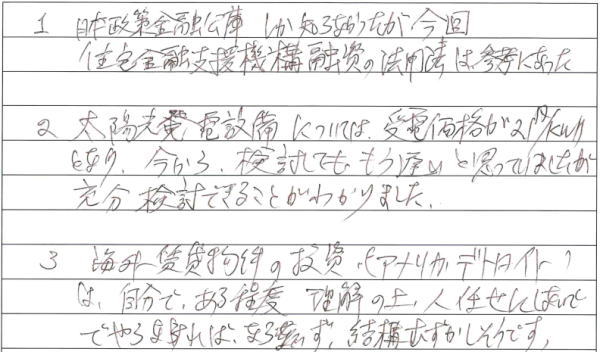 1 日本政策金融公庫 しか知らなかったが、今回
住宅金融支援機構融資の活用法は参考になった
2 太陽光発電設備については、受電価格が21円/kWh
となり、今から、検討しても、もう遅いと思っていましたが
充分検討できることがわかりました。
3 海外賃貸物件の投資(アメリカ,デトロイト)
は、自分で、ある程度 理解の上、人任せにしないで
でやらなければ、ならず、結構むずかしそうです。